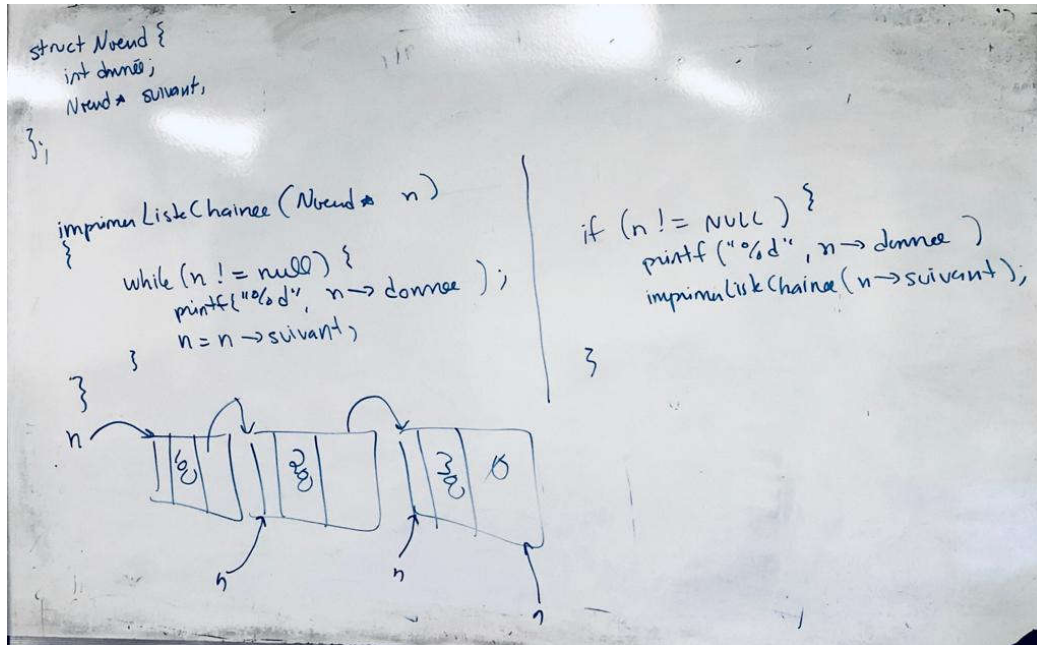 struct Noeud {
int donnée;
Noeud* suivant;
};
imprimerListeChainee (Noeud* n)
{
while (n != null) {
printf("%d", n → donnee );
n = n → suivant;
}
}
if (n != NULL) {
printf ("%d", n → donnee )
imprimerListeChainee (n → suivant);
}
n
n
n
n